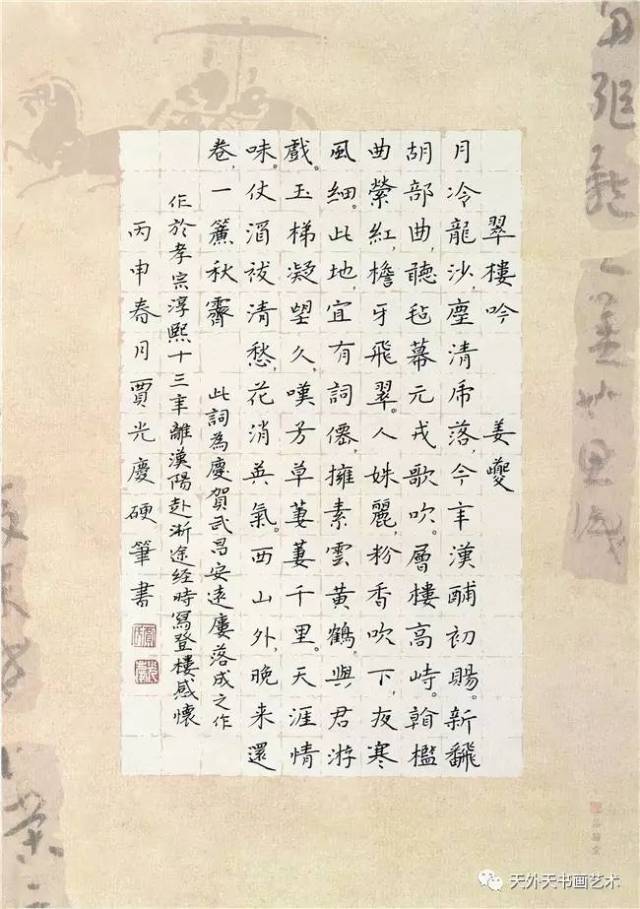 翠樓吟 姜夔
月冷龍沙，塵清虎落，今年漢酺初賜。新飜
胡部曲，聽氈幕元戎歌吹。層樓高峙。檻
曲縈紅，檐牙飛翠。人姝麗，粉香吹下，夜寒
風細。此地，宜有詞僊，擁素雲黃鶴，與君游
戲。玉梯凝望久，嘆芳草萋萋千里。天涯情
味。仗酒祓清愁，花消英氣。西山外，晚来還
卷，一簾秋霽
此詞為慶賀武昌安遠樓落成之作
作於孝宗淳熙十三年離漢陽赴浙途经時寫登樓感懷
丙申春月賈光慶硬筆書
天外天书画艺术